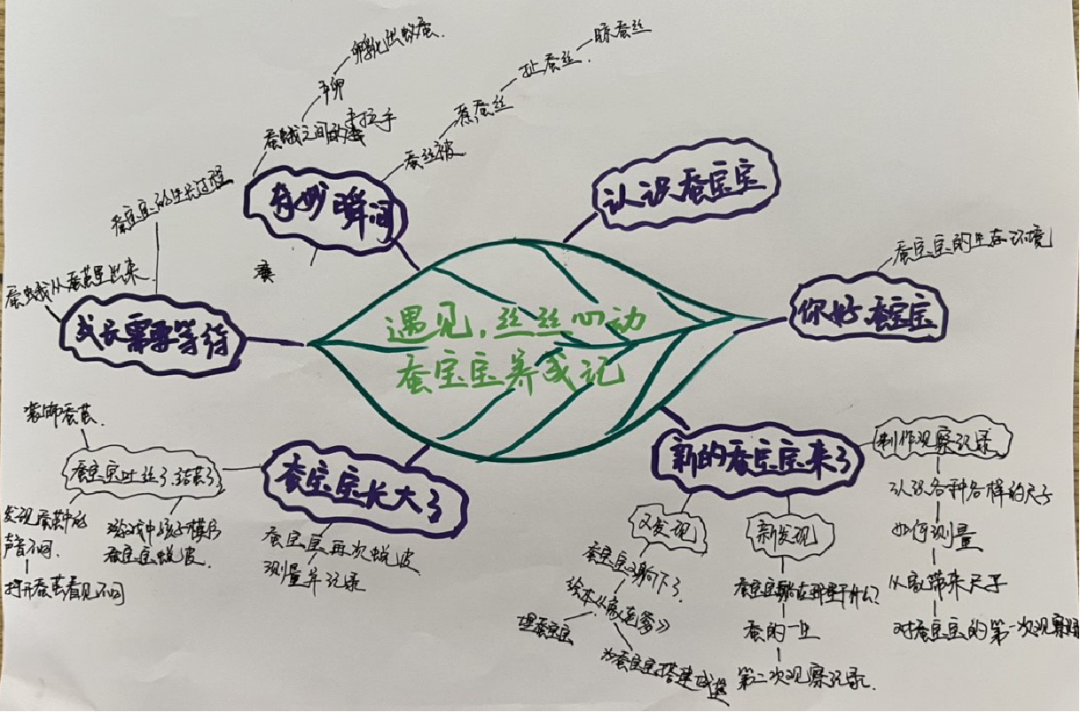 遇见，丝丝心动
蚕宝宝养成记
认识蚕宝宝
你好蚕宝宝
蚕宝宝的生存环境
新的蚕宝宝来了
制作观察记录
认识各种各样的尺子
如何测量
从家带来尺子
对蚕宝宝的第一次观察
新发现
蚕宝宝躺在那里干什么？
蚕的一生
第二次观察记录.
又发现
蚕宝宝躺下了.
绘本
埋蚕宝宝
为蚕宝宝搭建
蚕宝宝长大了
蚕宝宝再次蜕皮
测量并记录
蚕宝宝吐丝了.结茧了
装饰蚕茧.
发现蚕茧中的
声音不同.
打开蚕茧看见不同
游戏中孩子模仿
蚕宝宝蜕皮.
成长需要等待
蚕蛾从蚕茧里出来.
蚕宝宝的生长过程
奇妙瞬间
蚕蛾之间的
手拉手
产卵
孵化出蚁蚕.
蚕丝被
蒸蚕丝
扯蚕丝.
晾蚕丝